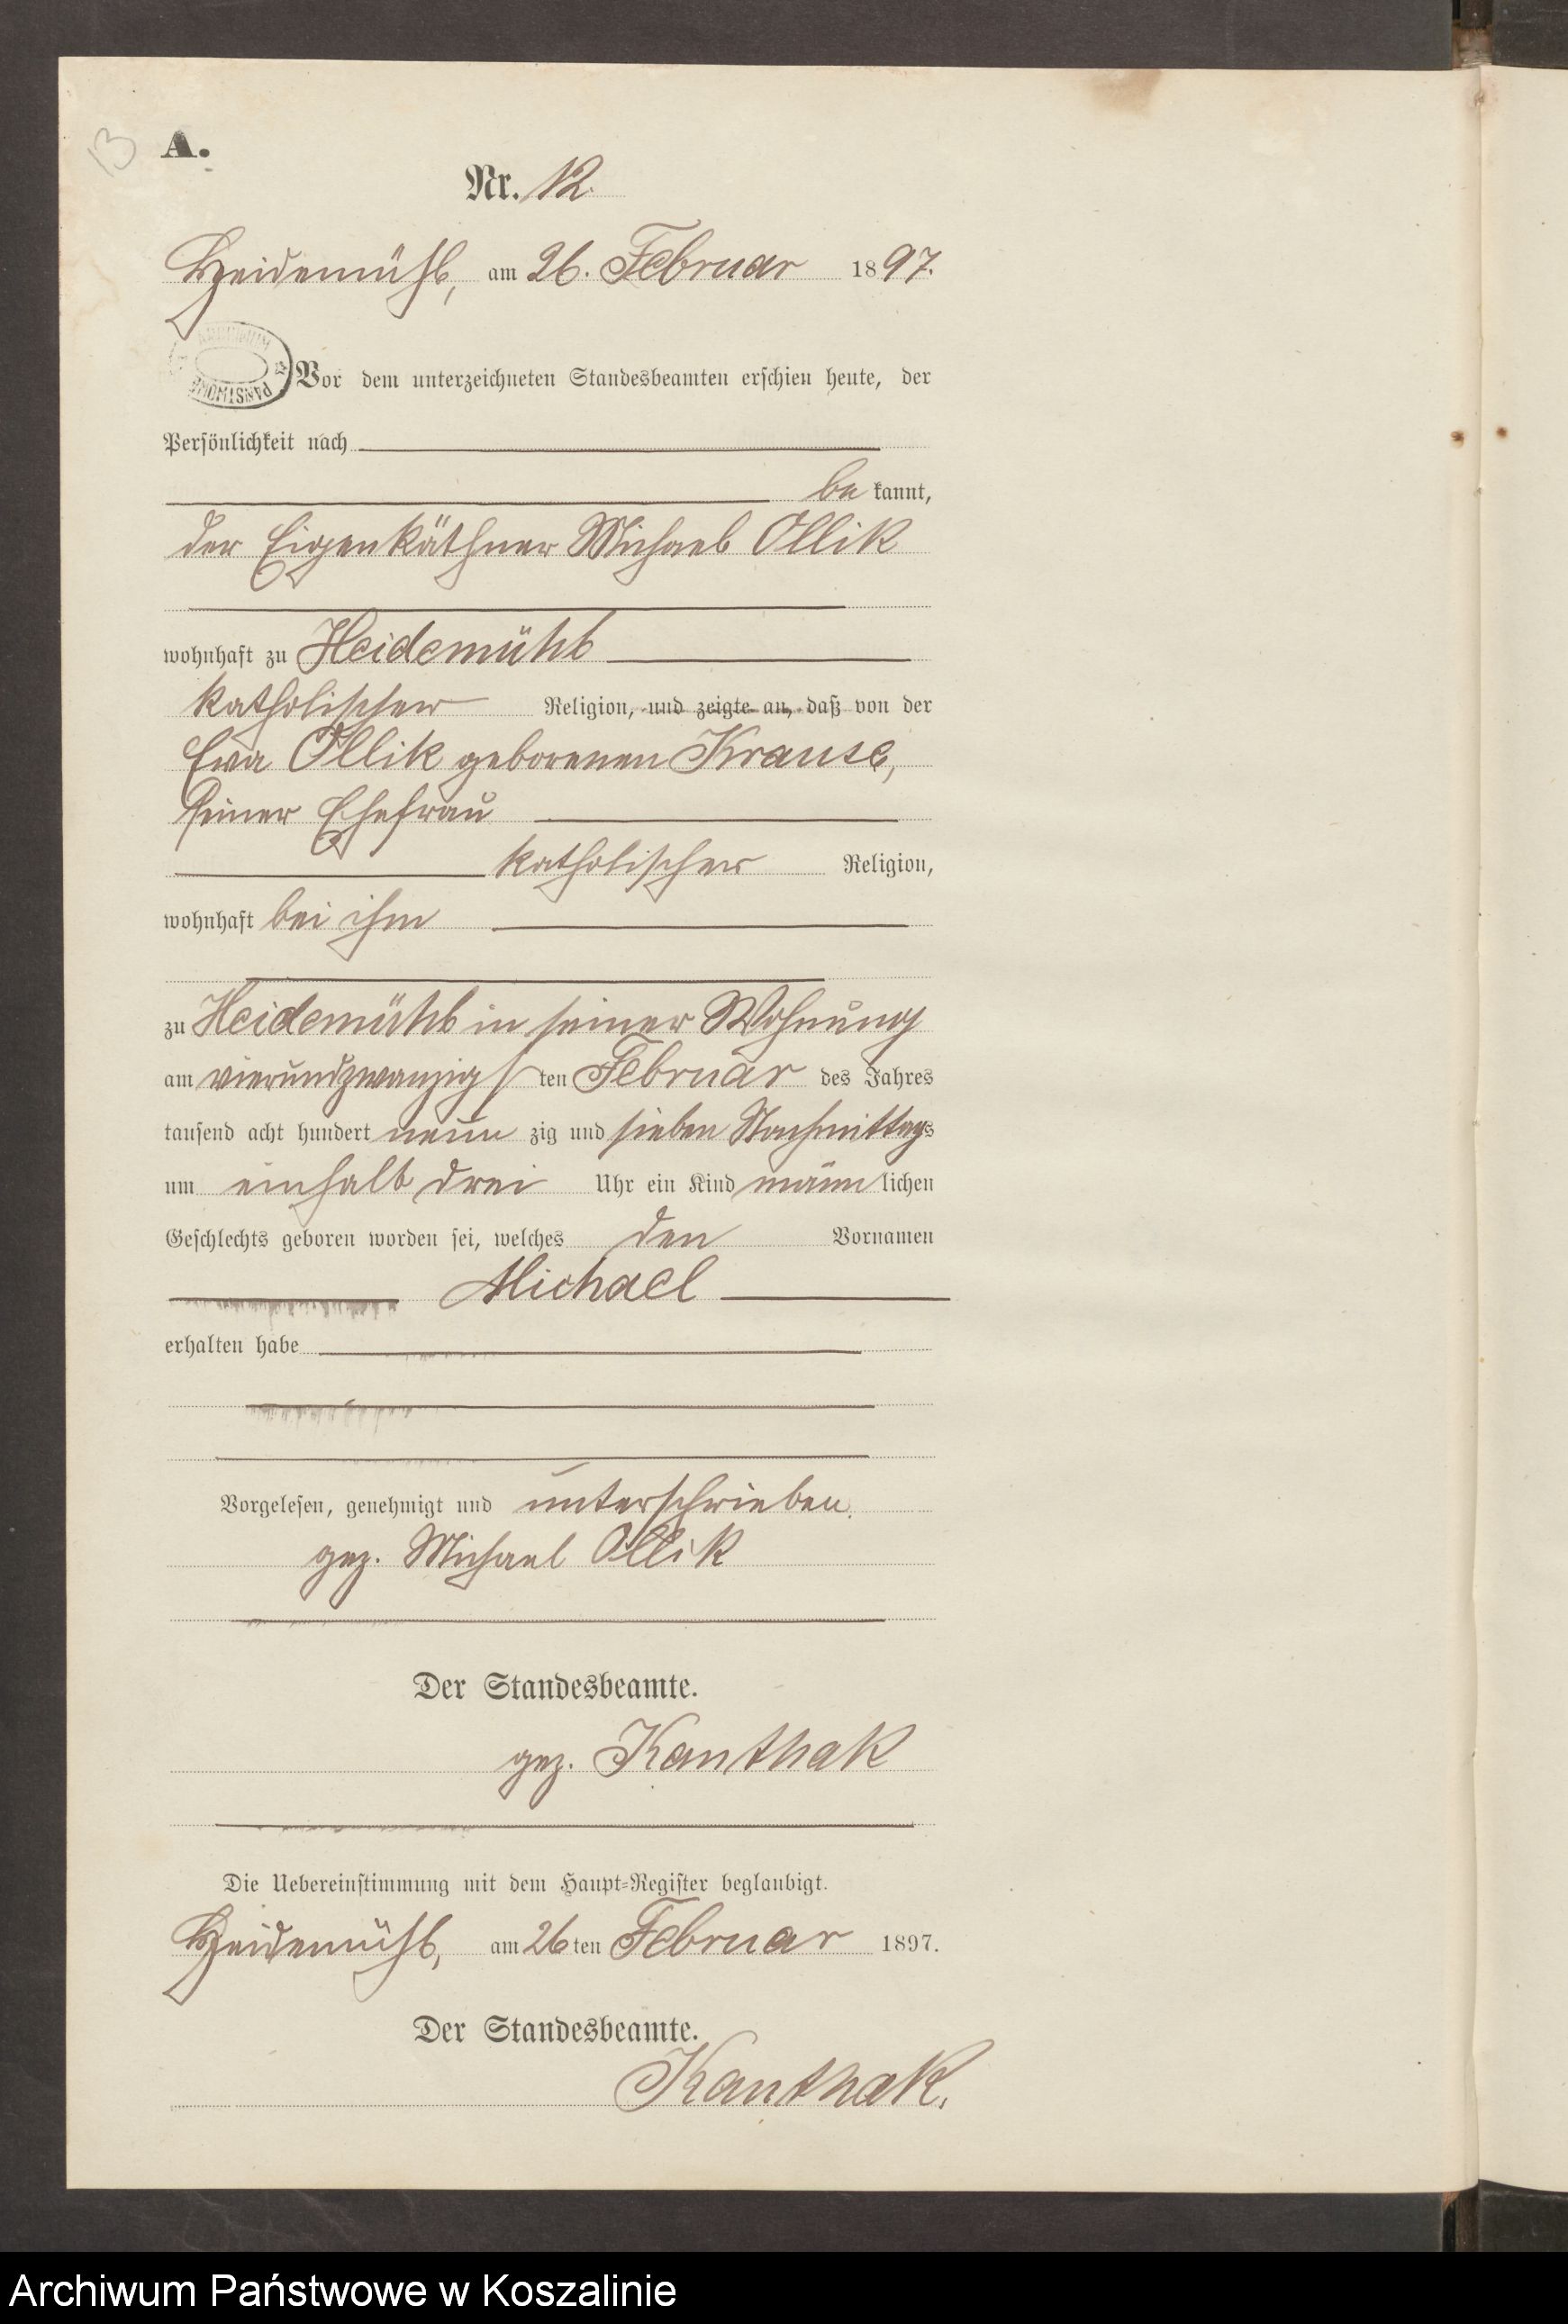 13
A.
Nr. 12.
Heidemühl, am 26. Februar 1897.
ARCHIWUM PAŃSTWOWE
Vor dem unterzeichneten Standesbeamten erschien heute, der
Persönlichkeit nach
be kannt,
der Eigenkäthner Michael Ollik
wohnhaft zu Heidemühl
katholischer Religion, und zeigte an, daß von der
Eva Ollik geborenen Krause,
seiner Ehefrau
katholischer Religion,
wohnhaft bei ihm
zu Heidemühl in seiner Wohnung
am vierundzwanzigs ten Februar des Jahres
tausend acht hundert neun zig und sieben Nachmittags
um einhalb drei Uhr ein Kind männ lichen
Geschlechts geboren worden sei, welches den Vornamen
Michael
erhalten habe
Vorgelesen, genehmigt und unterschrieben.
gez. Michael Ollik
Der Standesbeamte.
gez. Kanthak
Die Uebereinstimmung mit dem Haupt-Register beglaubigt.
Heidemühl, am 26 ten Februar 1897.
Der Standesbeamte.
Kanthak.
Archiwum Państwowe w Koszalinie